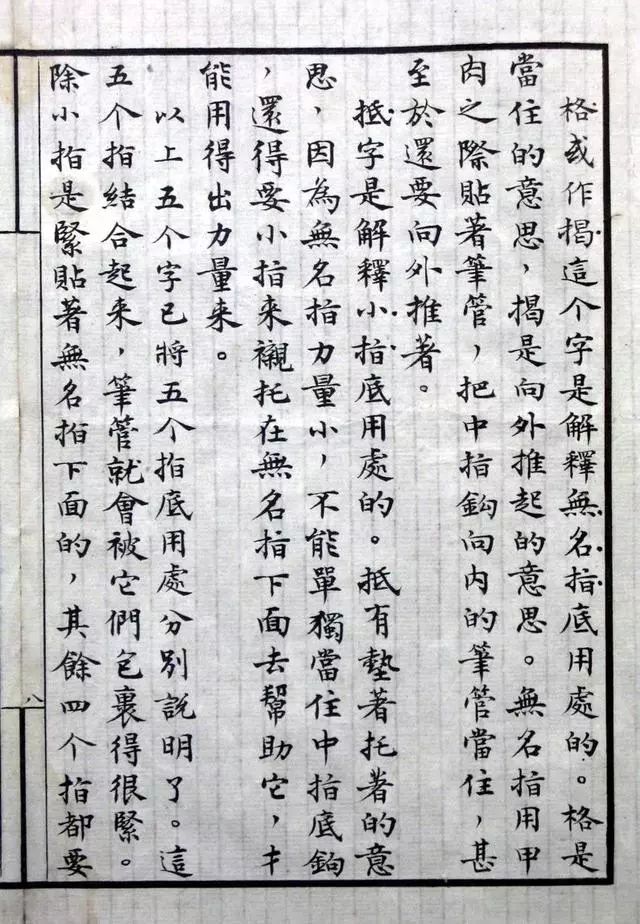 格或作揭這个字是解釋無名指底用處的。格是
當住的意思,揭是向外推起的意思。無名指用甲
肉之際貼著筆管,把中指鈎向內的筆管當住,甚
至於還要向外推著。
抵字是解釋小指底用處的。抵有墊著托著的意
思,因為無名指力量小,不能單獨當住中指底鈎
,還得要小指来襯托在無名指下面去幫助它,才
能用得出力量来。
以上五个字已將五个指底用處分別說明了。這
五个指結合起来,筆管就會被它們包裹得很緊。
除小指是緊貼著無名指下面的,其餘四个指都要
八